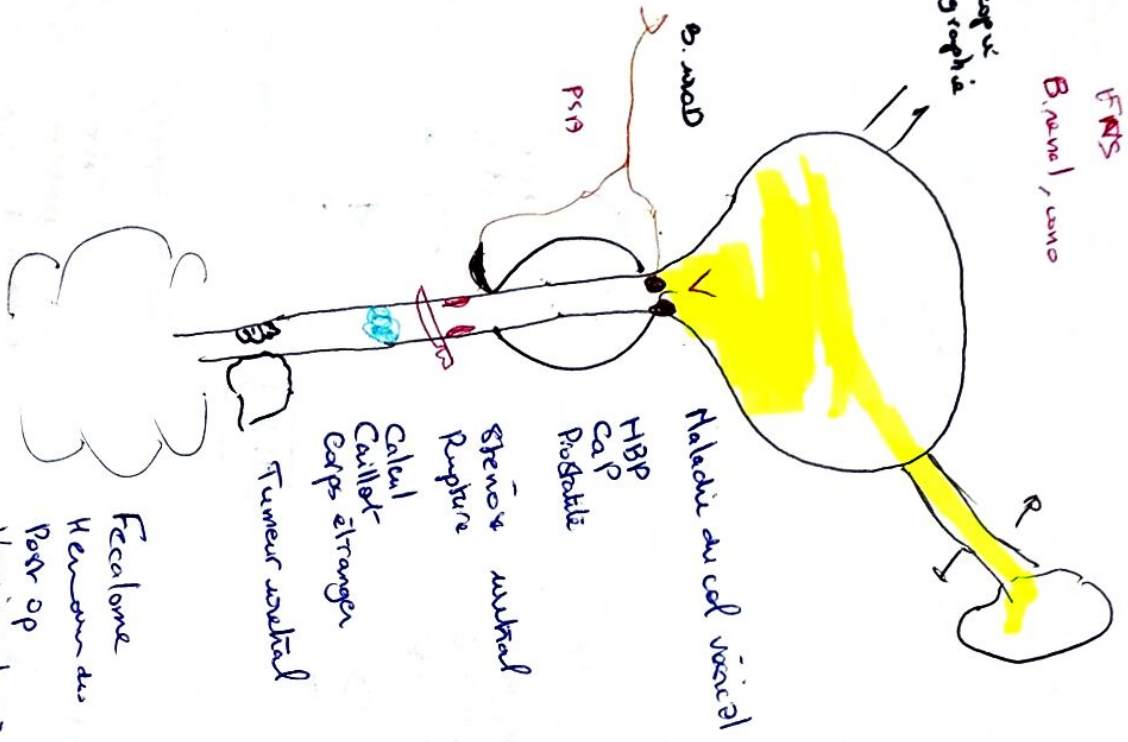 FNS
B. renal, iono
graphie
B. uroD
Maladie du col vésical
HBP
CaP
PSA
Prostatite
Sténose urétral
Rupture
Calcul
Caillot
Corps étranger
Tumeur urétral
Fecalome
Post op